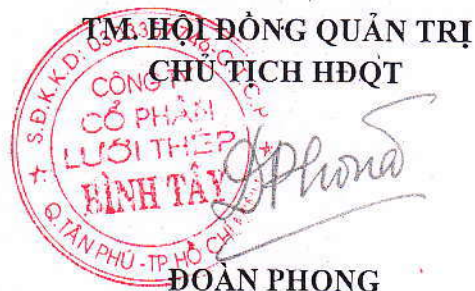 TM. HỘI ĐỒNG QUẢN TRỊ
CHỦ TỊCH HĐQT
CÔNG
CỔ PHẦN
LƯỚI THÉP
BÌNH TÂY
Q.TÂN PHÚ - TP HỒ CHÍ
S.Đ.K.K.D:
DPhong
ĐOÀN PHONG